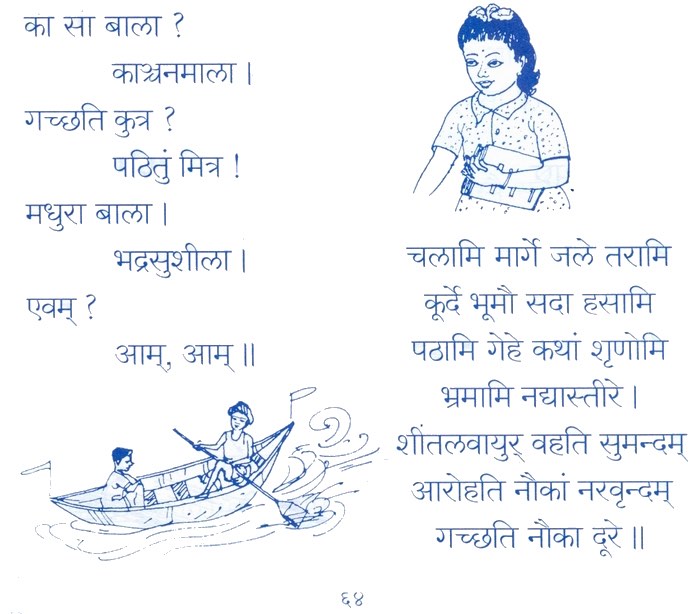 का सा बाला ?
काञ्चनमाला ।
गच्छति कुत्र ?
पठितुं मित्र !
मधुरा बाला ।
भद्रसुशीला ।
एवम् ?
आम्, आम् ॥
चलामि मार्गे जले तरामि
कूर्दे भूमौ सदा हसामि
पठामि गेहे कथां शृणोमि
भ्रमामि नद्यास्तीरे ।
शींतलवायुर् वहति सुमन्दम्
आरोहति नौकां नरवृन्दम्
गच्छति नौका दूरे ॥
६४